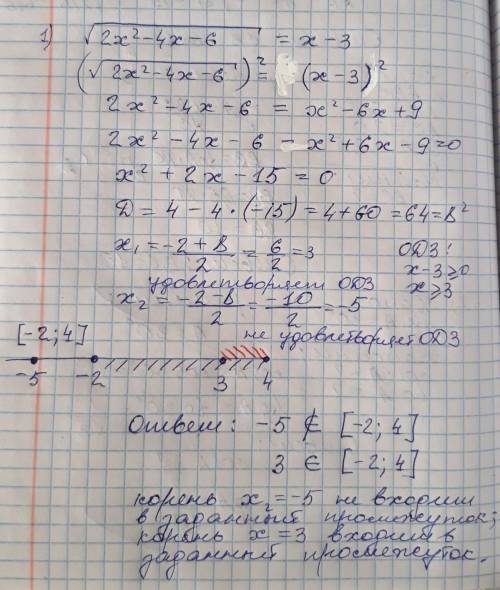 1) √(2x²-4x-6) = x-3
(√(2x²-4x-6))² = (x-3)²
2x²-4x-6 = x²-6x+9
2x²-4x-6-x²+6x-9=0
x²+2x-15=0
Д = 4-4·(-15)=4+60=64=8²
x₁=(-2+8)/2=6/2=3
ОДЗ:
x-3≥0
x≥3
удовлетворяет ОДЗ
x₂=(-2-8)/2=-10/2=-5
не удовлетворяет ОДЗ
[-2;4]
-5 -2 3 4
Ответ: -5 ∉ [-2;4]
3 ∈ [-2;4]
корень x₂=-5 не входит
в заданный промежуток;
корень x=3 входит в
заданный промежуток.